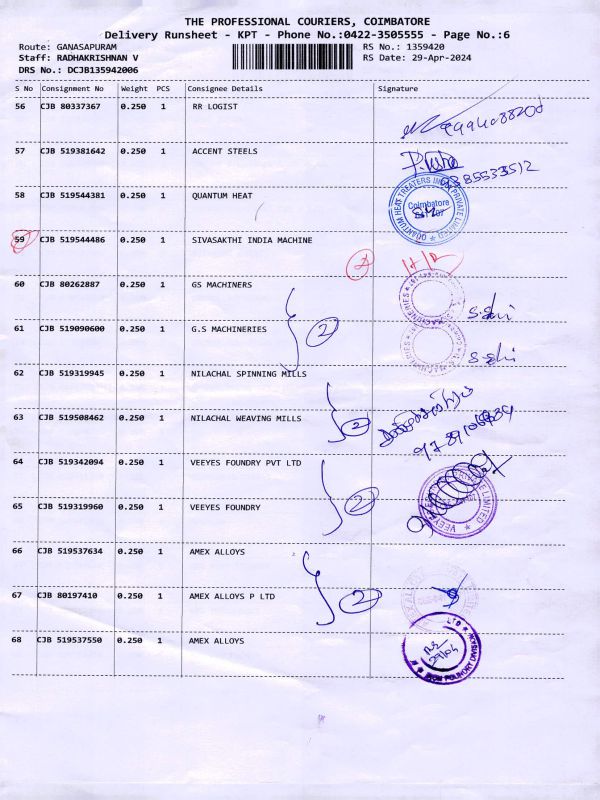 THE PROFESSIONAL COURIERS, COIMBATORE
Delivery Runsheet - KPT - Phone No.:0422-3505555 - Page No.:6
Route: GANASAPURAM RS No.: 1359420
Staff: RADHAKRISHNAN V RS Date: 29-Apr-2024
DRS No.: DCJB135942006
S No Consignment No Weight PCS Consignee Details Signature
56 CJB 80337367 0.250 1 RR LOGIST
57 CJB 519381642 0.250 1 ACCENT STEELS
58 CJB 519544381 0.250 1 QUANTUM HEAT
QUANTUM HEAT TREATERS INDIA PRIVATE LIMITED
Coimbatore
59 CJB 519544486 0.250 1 SIVASAKTHI INDIA MACHINE
60 CJB 80262887 0.250 1 GS MACHINERS
61 CJB 519090600 0.250 1 G.S MACHINERIES
2
62 CJB 519319945 0.250 1 NILACHAL SPINNING MILLS
63 CJB 519508462 0.250 1 NILACHAL WEAVING MILLS
2
64 CJB 519342094 0.250 1 VEEYES FOUNDRY PVT LTD
65 CJB 519319960 0.250 1 VEEYES FOUNDRY
2
66 CJB 519537634 0.250 1 AMEX ALLOYS
67 CJB 80197410 0.250 1 AMEX ALLOYS P LTD
2
68 CJB 519537550 0.250 1 AMEX ALLOYS